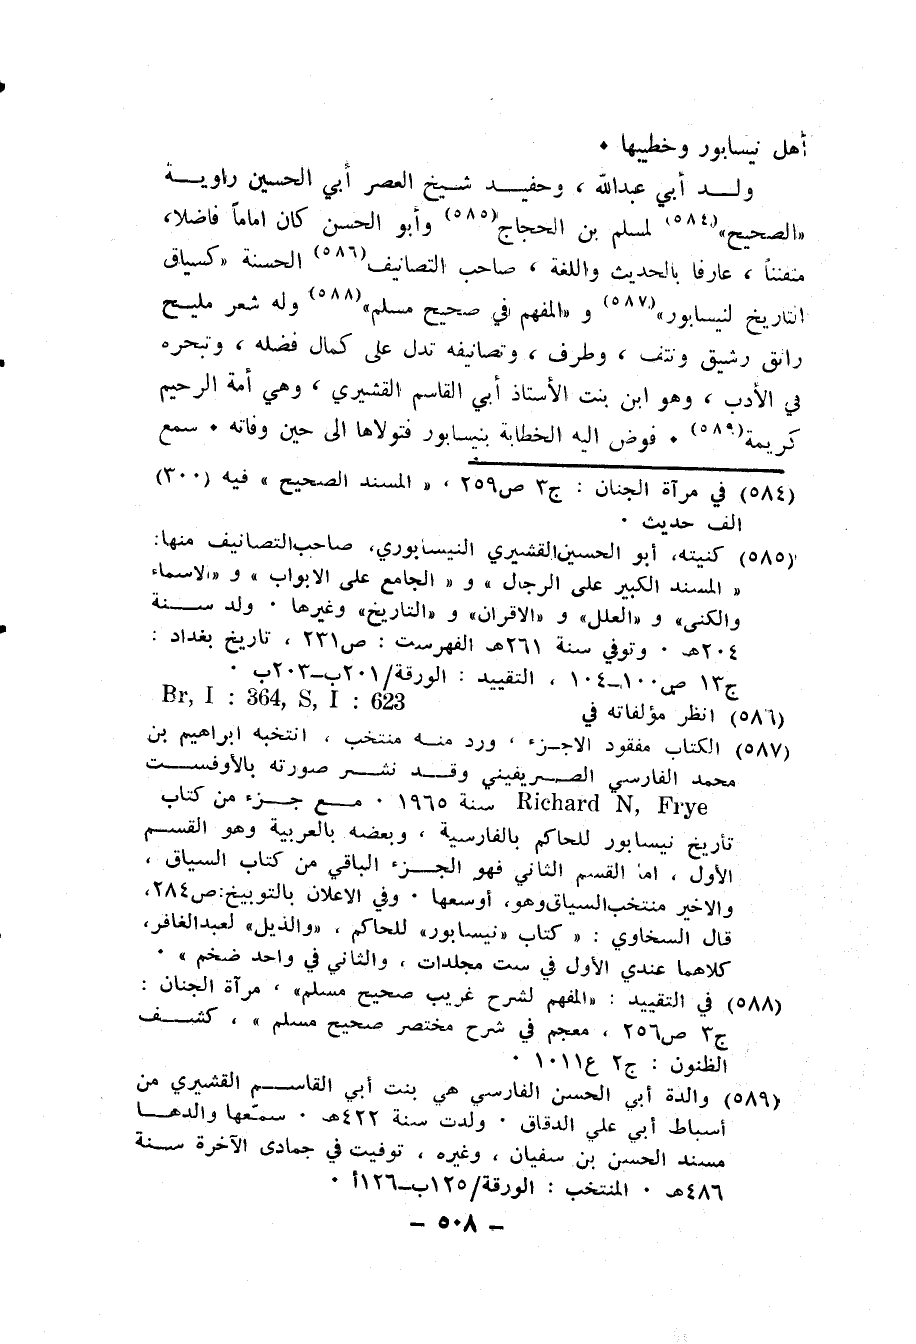 أهل نيسابور وخطيبها •
ولـــد أبي عبدالله ، وحفيـــد شـيخ العصر أبي الحسين راويـــة
«الصحيح»(٥٨٤) لمسلم بن الحجاج(٥٨٥) وأبو الحسن كان اماماً فاضلا،
متفنناً ، عارفا بالحديث واللغة ، صاحب التصانيف(٥٨٦) الحسنة «كسياق
التاريخ لنيسابور»(٥٨٧) و «المفهم في صحيح مسلم»(٥٨٨) وله شعر مليـح
رائق رشيق ونتف ، وطرف ، وتصانيفه تدل على كمال فضله ، وتبحره
في الأدب ، وهو ابن بنت الأستاذ أبي القاسم القشيري ، وهي أمة الرحيم
كريمة(٥٨٩) • فوض اليه الخطابة بنيسابور فتولاها الى حين وفاته • سمع
(٥٨٤) في مرآة الجنان : ج٣ ص٢٥٩ ، « المسند الصحيح » فيه (٣٠٠)
الف حديث •
(٥٨٥) كنيته، أبو الحسين القشيري النيسابوري، صاحب التصانيف منها:
« المسند الكبير على الرجال » و « الجامع على الابواب » و «الاسماء
والكنى» و «العلل» و «الاقران» و «التاريخ» وغيرها • ولد ســـنة
٢٠٤هـ • وتوفي سنة ٢٦١هـ الفهرست : ص٢٣١ ، تاريخ بغداد :
ج١٣ ص١٠٠ــ١٠٤ ، التقييد : الورقة/٢٠١ب–٢٠٣ب •
(٥٨٦) انظر مؤلفاته في Br, I : 364, S, I : 623
(٥٨٧) الكتاب مفقود الاجـزء ، ورد منـه منتخب ، انتخبه ابراهيم بن
محمد الفارسي الصـــريفيني وقـــد نشـــر صورته بالأوفســـت
Richard N, Frye سنة ١٩٦٥ • مـــع جـــزء من كتاب
تأريخ نيسابور للحاكم بالفارسية ، وبعضه بالعربية وهو القســـم
الأول ، اما القسم الثاني فهو الجـــزء الباقي من كتاب السياق ،
والاخير منتخب السياق وهو، أوسعها • وفي الاعلان بالتوبيخ:ص٢٨٤،
قال السخاوي : « كتاب «نيسابور» للحاكم ، «والذيل» لعبدالغافر،
كلاهما عندي الأول في ست مجلدات ، والثاني في واحد ضخم » •
(٥٨٨) في التقييد : «المفهم لشرح غريب صحيح مسلم» ، مرآة الجنان :
ج٣ ص٢٥٦ ، معجم في شرح مختصر صحيح مسلم » ، كشـــف
الظنون : ج٢ ع١٠١١ •
(٥٨٩) والدة أبي الحسن الفارسي هي بنت أبي القاســـم القشيري من
أسباط أبي علي الدقاق • ولدت سنة ٤٢٢هـ • سمّعها والدهـــا
مسند الحسن بن سفيان ، وغيره ، توفيت في جمادى الآخرة ســـنة
٤٨٦هـ • المنتخب : الورقة/١٢٥ب–١٢٦أ •
– ٥٠٨ –